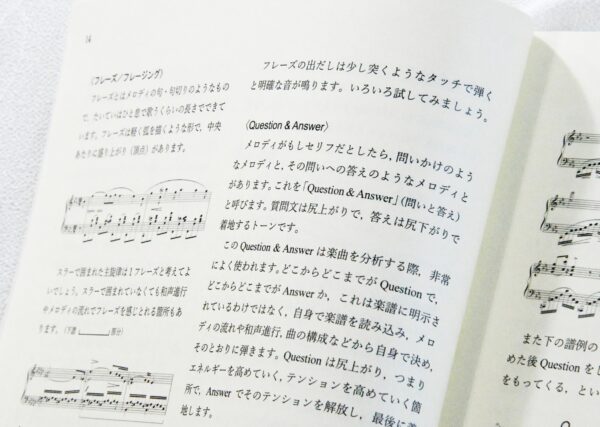 14
〈フレーズ／フレージング〉
フレーズとはメロディの句・句切りのようなもの
で、たいていはひと息で歌うくらいの長さでできて
います。フレーズは軽く弧を描くような形で、中央
あたりに盛り上がり（頂点）があります。
スラーで囲まれた主旋律は1フレーズと考えてよ
いでしょう。スラーで囲まれていなくても和声進行
やメロディの流れでフレーズを感じとれる箇所もあ
ります。（下譜 部分）
フレーズの出だしは少し突くようなタッチで弾く
と明確な音が鳴ります。いろいろ試してみましょう。
〈Question & Answer〉
メロディがもしセリフだとしたら、問いかけのよう
なメロディと、その問いへの答えのようなメロディと
があります。これを「Question & Answer」（問いと答え）
と呼びます。質問文は尻上がりで、答えは尻下がりで
着地するトーンです。
この Question & Answer は楽曲を分析する際、非常
によく使われます。どこからどこまでが Question で、
どこからどこまでが Answer か、これは楽譜に明示さ
れているわけではなく、自身で楽譜を読み込み、メロ
ディの流れや和声進行、曲の構成などから自身で決め、
そのとおりに弾きます。Question は尻上がり、つまり
エネルギーを高めていく、テンションを高めていく箇
所で、Answer でそのテンションを解放し、最後に着
地します。
また下の譜例の
めた後 Question をし
をもってくる、とい